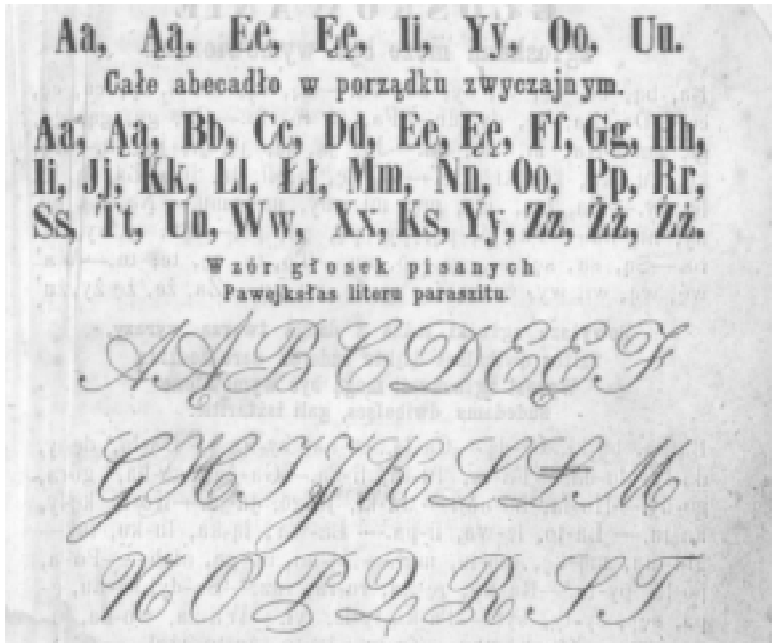 Aa, Ąą, Ee, Ęę, Ii, Yy, Oo, Uu.
Całe abecadło w porządku zwyczajnym.
Aa, Ąą, Bb, Cc, Dd, Ee, Ęę, Ff, Gg, Hh,
Ii, Jj, Kk, Ll, Łł, Mm, Nn, Oo, Pp, Rr,
Ss, Tt, Uu, Ww, Xx, Ks, Yy, Zz, Żż, Żż.
Wzór głosek pisanych
Pawejksłas literu paraszitu.
A Ą B C D E Ę F
G H I J K L Ł M
N O P Q R S T